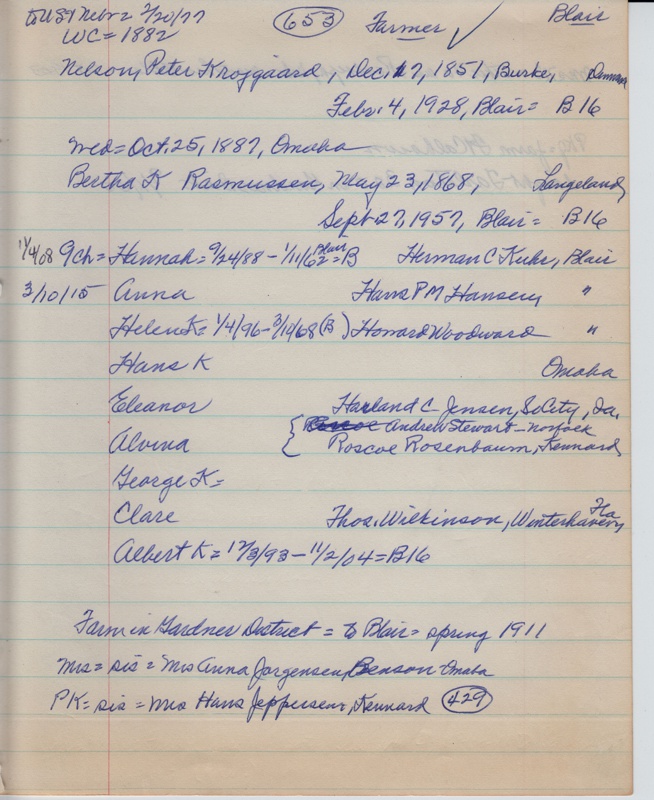 to USA Nebr = 2/20/77 653 Farmer ✓ Blair
WC = 1882
Nelson, Peter Krojgaard, Dec. 17, 1851, Burke, Denmark
Febr. 4, 1928, Blair = B16
Wed = Oct. 25, 1887, Omaha
Bertha K Rasmussen, May 23, 1868, Langeland,
Sept 27, 1957, Blair = B16
1/4/08 9ch = Hannah = 9/24/88 - 1/11/62 = B Blair Herman C Kuhr, Blair
3/10/15 Anna Hans P M Hansen, "
Helen K = 1/4/96 - 3/14/68 (B) Howard Woodward "
Hans K Omaha
Eleanor Harland C Jensen, So City, Ia.
Andrew Stewart - Norfolk
Alvina { Roscoe Rosenbaum, Kennard
George K =
Clare Thos. Wilkinson, Winterhaven, Fla
Albert K = 12/3/93 - 11/2/04 = B16
Farm in Gardner District = to Blair = spring 1911
Mrs = sis = Mrs Anna Jorgensen, Benson Omaha
PK = sis = Mrs Hans Jeppersen, Kennard 429